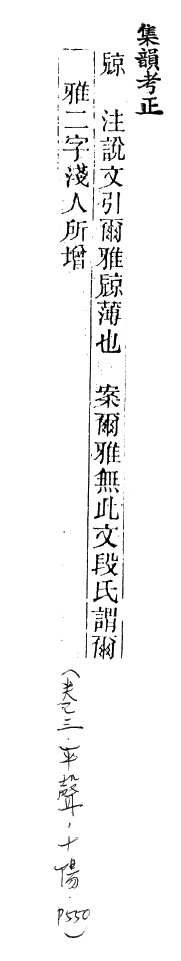 集韻考正
㹁 注說文引爾雅㹁薄也 案爾雅無此文段氏謂爾
雅二字淺人所增
(卷三.平聲.十陽.P550)